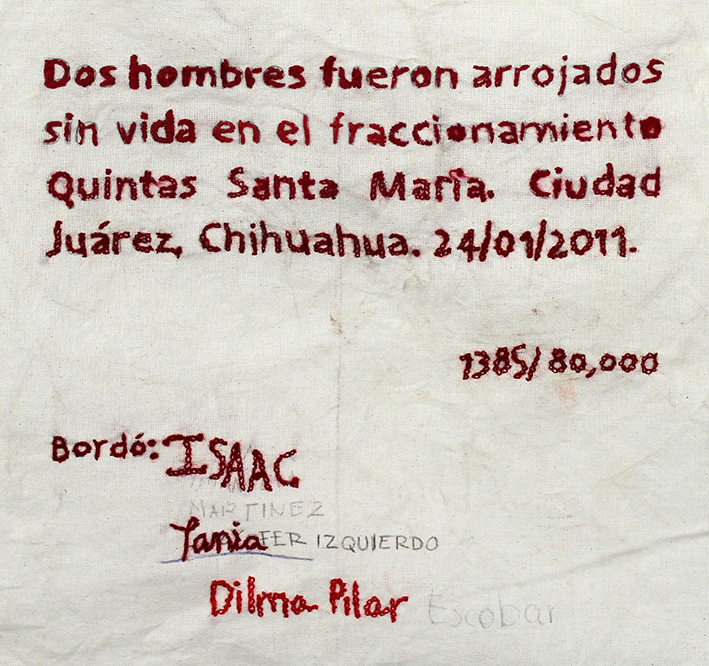 Dos hombres fueron arrojados
sin vida en el fraccionamiento
Quintas Santa María. Ciudad
Juárez, Chihuahua. 24/01/2011.
1385/80,000
Bordó: ISAAC
MARTINEZ
Tania FER IZQUIERDO
Dilma Pilar Escobar